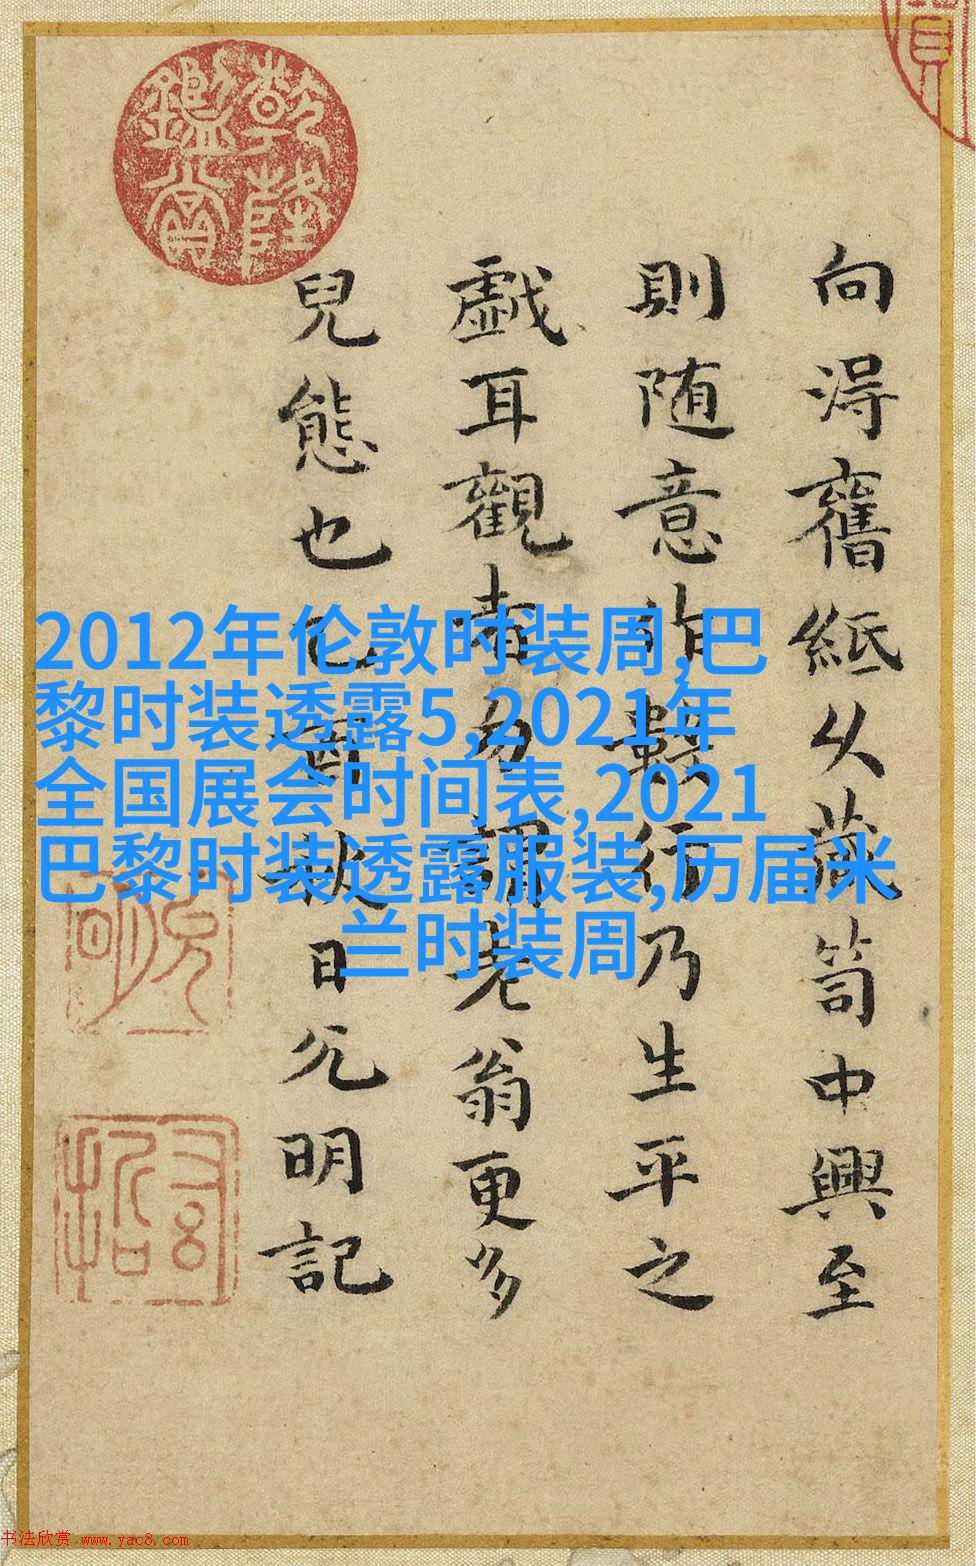 乾隆
鑑賞
向淂舊紙从藏笥中興至
則随意作行乃生平之
戲耳觀者勿謂老翁更多
兒態也酉秋日允明記
2012年伦敦时装周,巴
黎时装透露5,2021年
全国展会时间表,2021
巴黎时装透露服装,历届米
兰时装周
书法欣赏 www.yac8.com